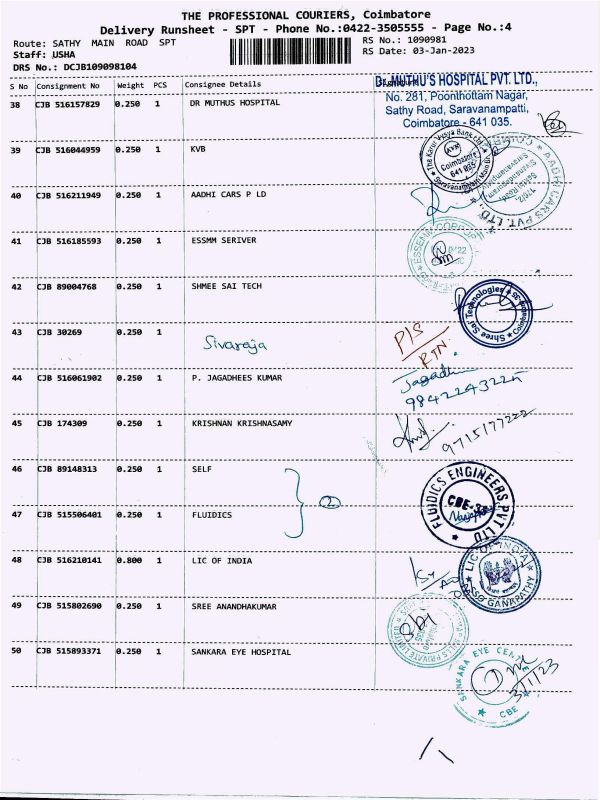 THE PROFESSIONAL COURIERS, Coimbatore
Delivery Runsheet - SPT - Phone No.:0422-3505555 - Page No.:4
Route: SATHY MAIN ROAD SPT
RS No.: 1090981
Staff: USHA
RS Date: 03-Jan-2023
DRS No.: DCJB109098104
S No Consignment No Weight PCS Consignee Details
38 CJB 516157829 0.250 1 DR MUTHUS HOSPITAL
Dr. MUTHU'S HOSPITAL PVT. LTD.,
No. 281, Poonthottam Nagar,
Sathy Road, Saravanampatti,
Coimbatore - 641 035.
39 CJB 516044959 0.250 1 KVB
The Karur Vysya Bank Ltd
KVB
Coimbatore
641 035
40 CJB 516211949 0.250 1 AADHI CARS P LD
AADHI CARS PVT. LTD.
41 CJB 516185593 0.250 1 ESSMM SERIVER
42 CJB 89004768 0.250 1 SHMEE SAI TECH
Shree Sai Technologies
43 CJB 30269 0.250 1
Sivaraja
P/S
RTN
44 CJB 516061902 0.250 1 P. JAGADHEES KUMAR
9842243225
45 CJB 174309 0.250 1 KRISHNAN KRISHNASAMY
9715177222
46 CJB 89148313 0.250 1 SELF
2
FLUIDICS ENGINEERS PVT LTD
47 CJB 515506401 0.250 1 FLUIDICS
48 CJB 516210141 0.800 1 LIC OF INDIA
LIC OF INDIA
GANAPATHY
49 CJB 515802690 0.250 1 SREE ANANDHAKUMAR
MILLS PRIVATE LIMITED
50 CJB 515893371 0.250 1 SANKARA EYE HOSPITAL
SANKARA EYE CENTRE
CBE
3/1/23